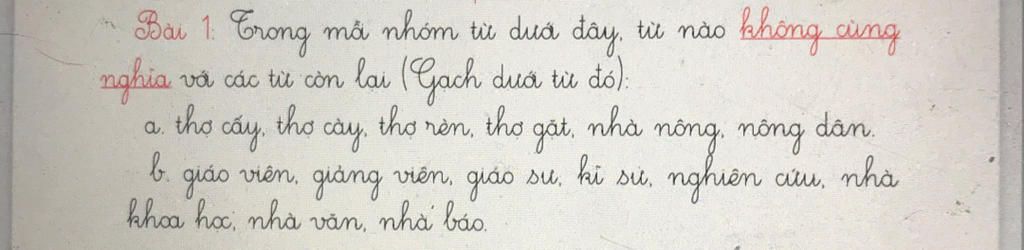 Bài 1: Trong mỗi nhóm từ dưới đây, từ nào không cùng
nghĩa với các từ còn lại (Gạch dưới từ đó):
a. thợ cấy, thợ cày, thợ rèn, thợ gặt, nhà nông, nông dân.
b. giáo viên, giảng viên, giáo sư, kĩ sư, nghiên cứu, nhà
khoa học, nhà văn, nhà báo.